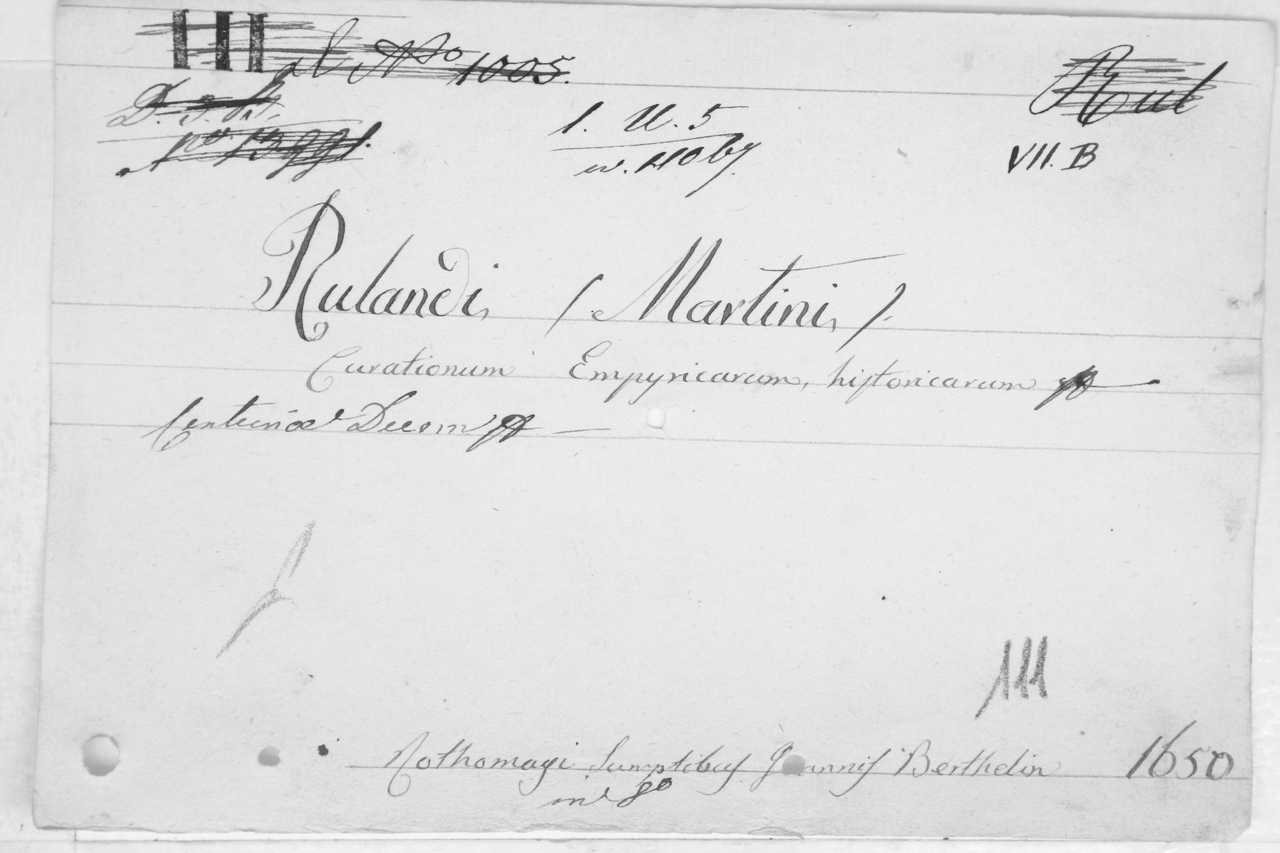 III al No 1005.
Rul
l. U. 5
VII. B
Rulandi, (Martini,)
Curationum Empyricarum, historicarum
Centuriae Decem
III
Rothomagi Sumptibus Joannis Berthelin 1650
in 8o